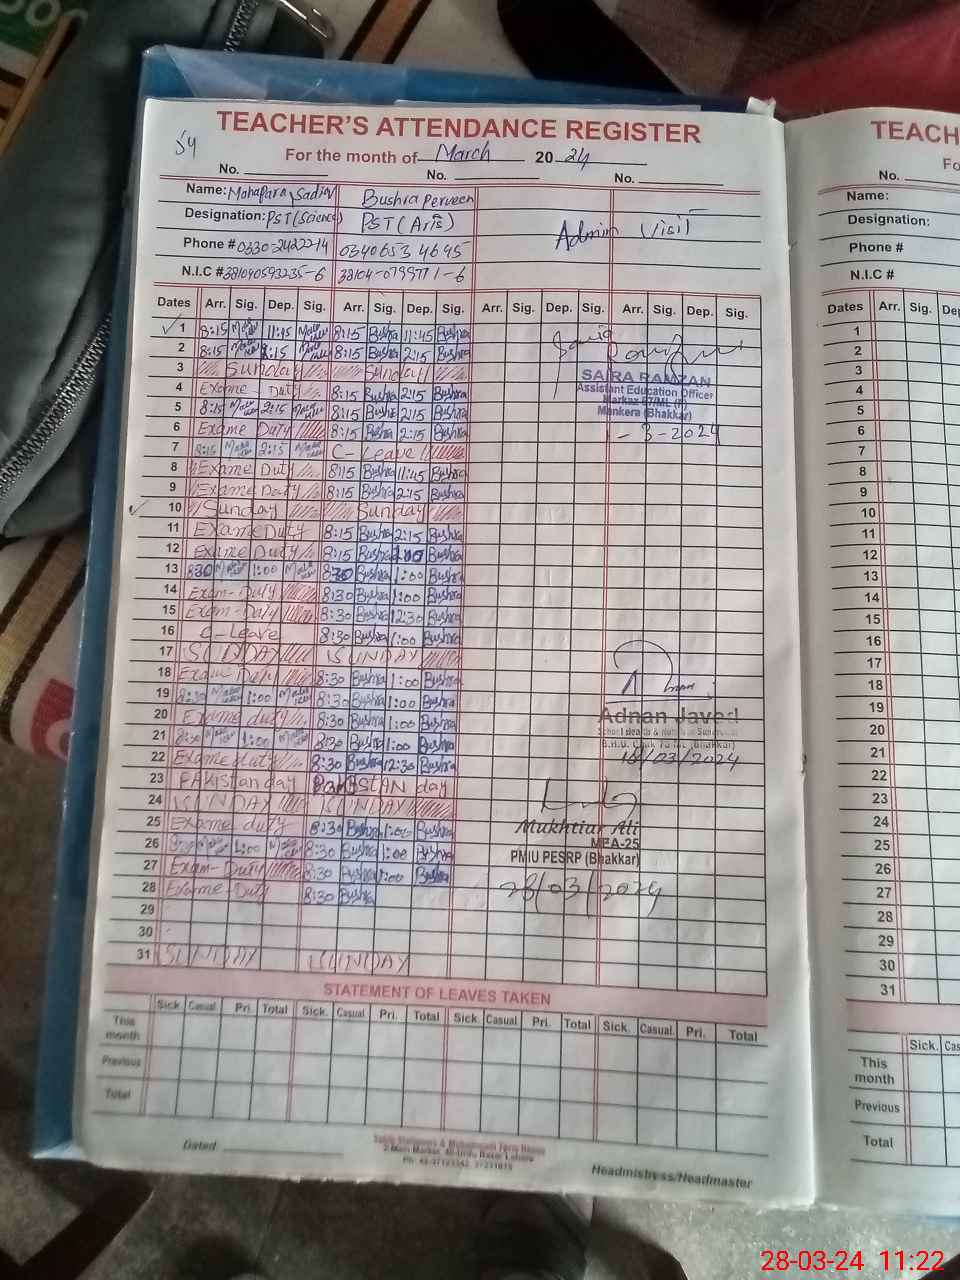 TEACHER'S ATTENDANCE REGISTER
For the month of March 2024
No. No. No.
Name: Mahapara Sadiq Bushra Perveen
Designation: PST (Science) PST (Arts)
Phone # 0330-2422214 0340653 4695
N.I.C #
Admin Visit
Dates Arr. Sig. Dep. Sig. Arr. Sig. Dep. Sig. Arr. Sig. Dep. Sig. Arr. Sig. Dep. Sig.
1 8:15 11:45 8:15 Bushra 11:45 Bushra
2 8:15 2:15 8:15 Bushra 2:15 Bushra
3 Sunday Sunday
4 Exame - Duty 8:15 Bushra 2:15 Bushra
5 8:15 2:15 8:15 Bushra 2:15 Bushra
6 Exame Duty 8:15 Bushra 2:15 Bushra
7 8:15 2:15 C- Leave
8 Exame Duty 8:15 Bushra 11:45 Bushra
9 Exame Duty 8:15 Bushra 2:15 Bushra
10 Sunday Sunday
11 Exame Duty 8:15 Bushra 2:15 Bushra
12 Exame Duty 8:15 Bushra Bushra
13 8:30 1:00 8:30 Bushra 1:00 Bushra
14 Exam - Duty 8:30 Bushra 1:00 Bushra
15 Exam - Duty 8:30 Bushra 12:30 Bushra
16 C-Leave 8:30 Bushra 1:00 Bushra
17 SUNDAY SUNDAY
18 Exam Duty 8:30 Bushra 1:00 Bushra
19 8:30 1:00 8:30 Bushra 1:00 Bushra
20 Exame duty 8:30 Bushra 1:00 Bushra
21 8:30 1:00 8:30 Bushra 1:00 Bushra
22 Exame duty 8:30 Bushra 12:30 Bushra
23 PAKistan day PAKISTAN day
24 SUNDAY SUNDAY
25 Exame duty 8:30 Bushra 1:00 Bushra
26 8:30 1:00 8:30 Bushra 1:00 Bushra
27 Exam - Duty 8:30 Bushra 1:00 Bushra
28 Exame Duty 8:30 Bushra
29
30
31 SUNDAY SUNDAY
SAIRA RAMZAN
Assistant Education Officer
Mankera (Bhakkar)
1-3-2024
Adnan Javed
18/03/2024
Mukhtiar Ali
MEA-25
PMIU PESRP (Bhakkar)
28/03/2024
STATEMENT OF LEAVES TAKEN
Sick. Casual. Pri. Total Sick. Casual. Pri. Total Sick. Casual. Pri. Total Sick. Casual. Pri. Total
This month
Previous
Total
Dated
Headmistress/Headmaster
TEACH
No.
Name:
Designation:
Phone #
N.I.C #
Dates Arr. Sig. Dep. Sig.
1
2
3
4
5
6
7
8
9
10
11
12
13
14
15
16
17
18
19
20
21
22
23
24
25
26
27
28
29
30
31
Sick. Cas
This month
Previous
Total
28-03-24 11:22